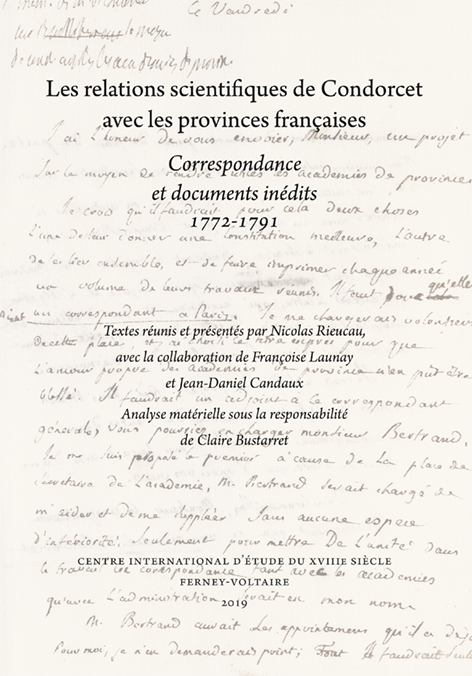 le Vendredi
Les relations scientifiques de Condorcet
avec les provinces françaises
J'ai l'honneur de vous envoier, Monsieur, un projet
Correspondance
Sur la moyen de rendre utiles les académies de province
et documents inédits
Je crois qu'il faudrait pour cela deux choses
1772-1791
L'une de leur donner une constitution meilleure, L'autre
de les lier ensemble, et de faire imprimer chaque année
qu'elles
un volume de leurs travaux réunis. Il faut donc
un correspondant à Paris. Je me chargerais volontiers
Textes réunis et présentés par Nicolas Rieucau,
De cette place, et pour que
avec la collaboration de Françoise Launay
L'amour propre des académies de province n'en put être
et Jean-Daniel Candaux
blessé. Il faudrait un adjoint à le correspondant
Analyse matérielle sous la responsabilité
général, vous pourriez en charger monsieur Bertrand,
de Claire Bustarret
Je me suis proposé le premier à cause de la place de
secretaire de l'académie, M. Bertrand serait chargé de
m'aider et de me suppléer Sans aucune espece
d'infériorité. Seulement pour mettre De l'unité dans
CENTRE INTERNATIONAL D'ÉTUDE DU XVIIIE SIÈCLE
le travail la correspondance tant avec les académies
FERNEY-VOLTAIRE
qu'avec L'administration serait en mon nom
2019
M. Bertrand aurait Les appointemens qu'il a déja
Pour moi, je n'en demanderais point; Il faudrait